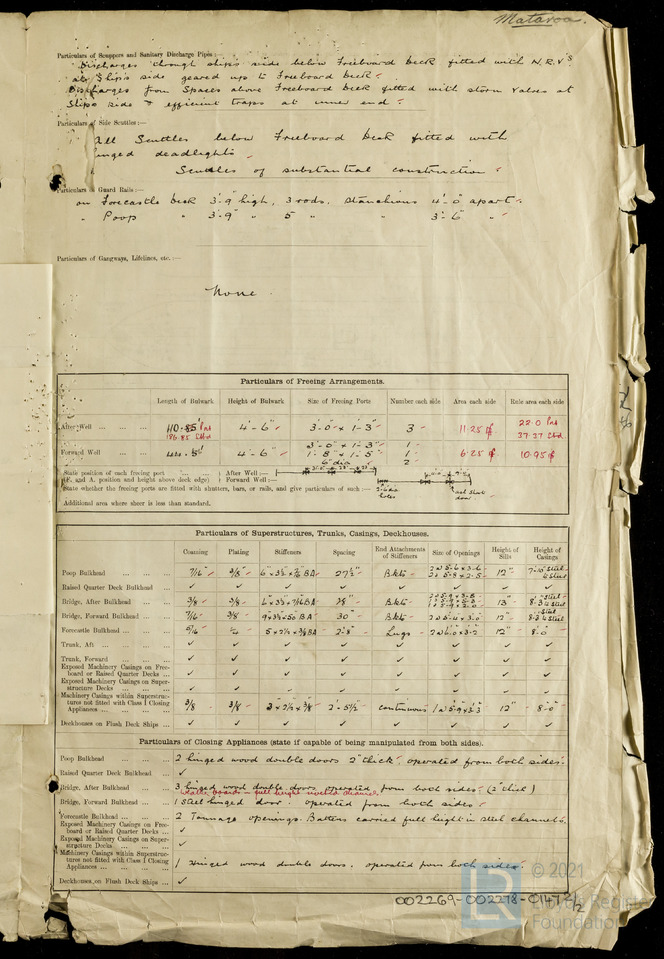 Mataroa.
Particulars of Scuppers and Sanitary Discharge Pipes:—
Discharges through ship's side below Freeboard Deck fitted with N.R.V's
at Ship's side geared up to Freeboard Deck
Discharges from Spaces above Freeboard Deck fitted with storm Valves at
Ships side & efficient traps at inner end
Particulars of Side Scuttles:—
All Scuttles below Freeboard Deck fitted with
hinged deadlights
Scuttles of substantial construction
Particulars of Guard Rails:—
on Forecastle Deck 3'-9" high, 3 rods, stanchions 4'-0" apart
" Poop " 3'-9" " 5 " " 3'-6" "
Particulars of Gangways, Lifelines, etc.:—
None.
Particulars of Freeing Arrangements.
Length of Bulwark Height of Bulwark Size of Freeing Ports Number each side Area each side Rule area each side
After Well 110.85' Port 4'-6" 3'-0" x 1'-3" 3 11.25 22.0 Port
186.85 Stbd 37.37 Stbd
3'-0" x 1'-3" 1
Forward Well 4'-6" 1'-8" x 1'-5" 1 6.25 10.95
6" dia 2
State position of each freeing port After Well:—
(F. and A. position and height above deck edge) Forward Well:—
State whether the freeing ports are fitted with shutters, bars, or rails, and give particulars of such:—
Additional area where sheer is less than standard.
Particulars of Superstructures, Trunks, Casings, Deckhouses.
Coaming Plating Stiffeners Spacing End Attachments of Stiffeners Size of Openings Height of Sills Height of Casings
Poop Bulkhead 7/16" 3/8" 27½" Bkts 12"
Raised Quarter Deck Bulkhead ✓ ✓ ✓ ✓ ✓ ✓ ✓ ✓
Bridge, After Bulkhead 3/8 3/8 6 x 3½ x 7/16 BA 28" Bkts 13"
Bridge, Forward Bulkhead 7/16 3/8 9 x 3½ x .50 BA 30" Bkts 2 @ 5'-4 x 3'-0" 12"
Forecastle Bulkhead 5/16 5 x 2½ x 3/8 BA 2'-3" Lugs 2 @ 6'-0 x 3'-2 12" 8'-0"
Trunk, Aft ✓ ✓ ✓ ✓ ✓ ✓ ✓ ✓
Trunk, Forward ✓ ✓ ✓ ✓ ✓ ✓ ✓ ✓
Exposed Machinery Casings on Freeboard or Raised Quarter Decks ✓ ✓ ✓ ✓ ✓ ✓ ✓ ✓
Exposed Machinery Casings on Superstructure Decks ✓ ✓ ✓ ✓ ✓ ✓ ✓ ✓
Machinery Casings within Superstructures not fitted with Class I Closing Appliances 3/8 3/8 3 x 2½ x 3/8 2'-5½" continuous 1 @ 5'-9 x 3'-3" 12" 8'-0"
Deckhouses on Flush Deck Ships ✓ ✓ ✓ ✓ ✓ ✓ ✓ ✓
Particulars of Closing Appliances (state if capable of being manipulated from both sides).
Poop Bulkhead 2 hinged wood double doors 2" thick, operated from both sides.
Raised Quarter Deck Bulkhead ✓
Bridge, After Bulkhead 3 hinged wood double doors operated from both sides (2" thick)
Bridge, Forward Bulkhead 1 Steel hinged door. operated from both sides
Forecastle Bulkhead 2 Tonnage openings. Battens carried full height in steel channels.
Exposed Machinery Casings on Freeboard or Raised Quarter Decks ✓
Exposed Machinery Casings on Superstructure Decks ✓
Machinery Casings within Superstructures not fitted with Class I Closing Appliances 1 Hinged wood double doors. operated from both sides
Deckhouses on Flush Deck Ships ✓
002269-002278-0147 2/2
© 2021
Lloyd's Register
Foundation